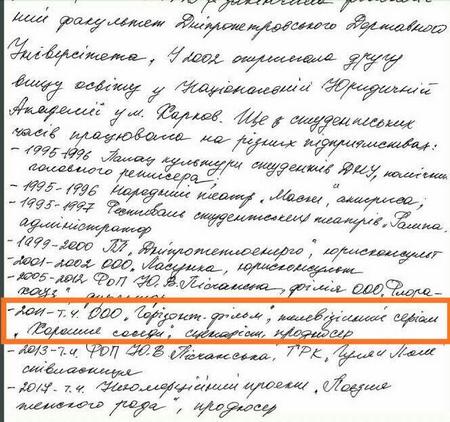 ний факультет Дніпропетровського Державного
Університета. У 2002 отримала другу
вищу освіту у Національній Юридичній
Академії у м. Харков. Ще з студентських
часів працювала на різних підприємствах:
- 1995-1996 Палац культури студентів ДНУ, помічник
головного режисера
- 1995-1996 Народний театр "Маски", актриса;
- 1995-1997 Фестиваль студентських театрів "Рампа",
адміністратор
- 1999-2000 "Дніпротеплоенерго", юрисконсульт
- 2001-2002 ООО "Ласунка", юрисконсульт
- 2005-2012 ФОП Ю.В. Пісканська, філія ООО "Флора-
- 2011-т.ч. ООО "Горізонт фільм", телевізійний серіал
"Хорошие соседи", сценаріст, продюсер
- 2013-т.ч. ФОП Ю.В Пісканська, ТРК "Гуляй Поле
співласниця
- 2017-т.ч. Некомерційний проект "Поэзия
женского рода", продюсер